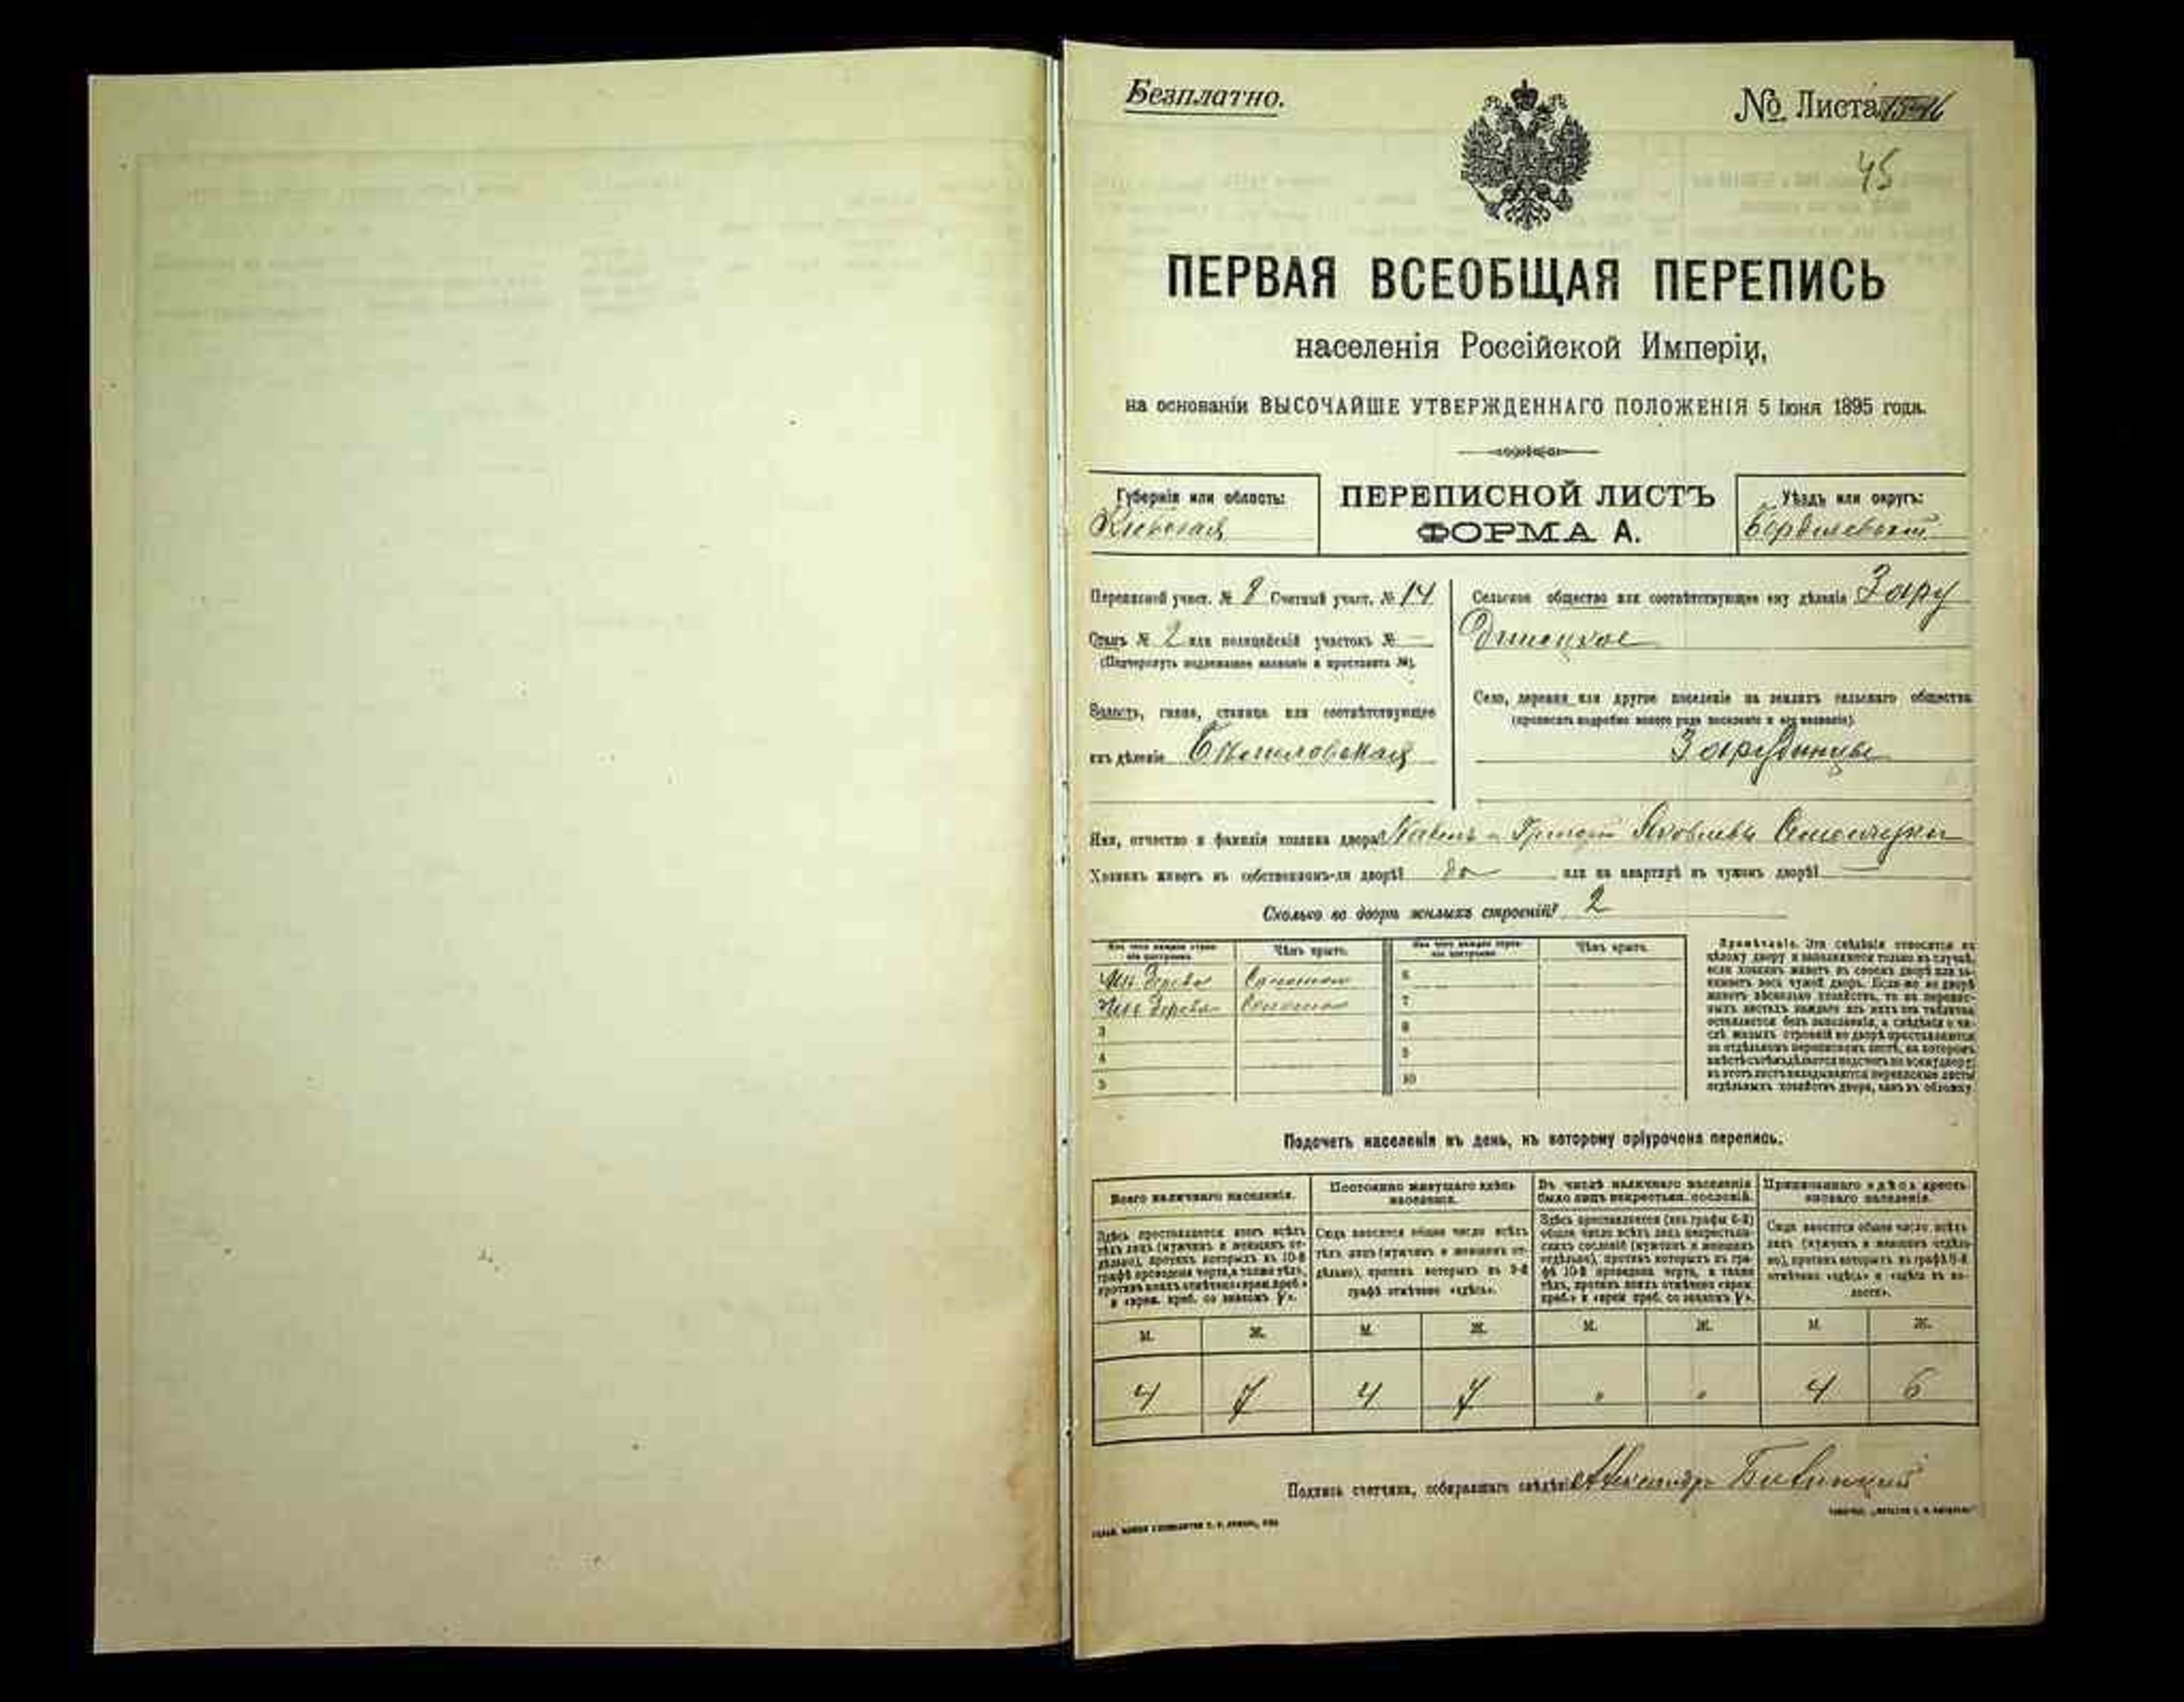 Безплатно.
№ Листа 15-16
45
ПЕРВАЯ ВСЕОБЩАЯ ПЕРЕПИСЬ
населенія Россійской Имперіи,
на основаніи ВЫСОЧАЙШЕ УТВЕРЖДЕННАГО ПОЛОЖЕНІЯ 5 Іюня 1895 года.
Губернія или область:
Кіевская
ПЕРЕПИСНОЙ ЛИСТЪ
ФОРМА А.
Уѣздъ или округъ:
Бердичевскій
Переписной участ. № 2 Счетный участ. № 14
Станъ № 2 или полицейскій участокъ № —
(Подчеркнуть подлежащее названіе и проставить №).
Волость, гмина, станица или соотвѣтствующее
имъ дѣленіе
Сельское общество или соотвѣтствующее ему дѣленіе Зару
динецкое
Село, деревня или другое поселеніе на земляхъ сельскаго общества
(прописать подробно какого рода поселеніе и его названіе).
Зарудинцы
Имя, отчество и фамилія хозяина двора и Григорій Яковлевы
Хозяинъ живетъ въ собственномъ-ли дворѣ? да или на квартирѣ въ чужомъ дворѣ? —
Сколько во дворѣ жилыхъ строеній? 2
Изъ чего каждое строе-
ніе построено.
Чѣмъ крыто.
Изъ чего каждое строе-
ніе построено.
Чѣмъ крыто.
Изъ дерева Соломою 6
Изъ дерева Соломою 7
3 8
4 9
5 10
Примѣчаніе. Эти свѣдѣнія относятся къ
цѣлому двору и заполняются только въ случаѣ,
если хозяинъ живетъ въ своемъ дворѣ или за-
нимаетъ весь чужой дворъ. Если-же во дворѣ
живетъ нѣсколько хозяйствъ, то на перепис-
ныхъ листахъ каждаго изъ нихъ эта табличка
оставляется безъ заполненія, а свѣдѣнія о чи-
слѣ жилыхъ строеній во дворѣ проставляются
на отдѣльномъ переписномъ листѣ, на которомъ
вмѣстѣ съ тѣмъ дѣлается подсчетъ по всему двору;
въ этотъ листъ вкладываются переписные листы
отдѣльныхъ хозяйствъ двора, какъ въ обложку.
Подсчетъ населенія въ день, къ которому пріурочена перепись.
Всего наличнаго населенія.
Здѣсь проставляется итогъ всѣхъ
тѣхъ лицъ (мужчинъ и женщинъ от-
дѣльно), противъ которыхъ въ 10-й
графѣ проведена черта, а также тѣхъ,
противъ коихъ отмѣчено «врем. преб.»
и «врем. преб. со знакомъ V».
Постоянно живущаго здѣсь
населенія.
Сюда вносится общее число всѣхъ
тѣхъ лицъ (мужчинъ и женщинъ от-
дѣльно), противъ которыхъ въ 9-й
графѣ отмѣчено «здѣсь».
Въ числѣ наличнаго населенія
было лицъ некрестьян. сословій.
Здѣсь проставляется (изъ графы 6-й)
общее число всѣхъ лицъ некрестьян-
скихъ сословій (мужчинъ и женщинъ
отдѣльно), противъ которыхъ въ гра-
фѣ 10-й проведена черта, а также
тѣхъ, противъ коихъ отмѣчено «врем.
преб.» и «врем. преб. со знакомъ V».
Приписаннаго здѣсь кресть-
янскаго населенія.
Сюда вносится общее число всѣхъ
лицъ (мужчинъ и женщинъ отдѣль-
но), противъ которыхъ въ графѣ 8-й
отмѣчено «здѣсь» и «здѣсь въ во-
лости».
М. Ж. М. Ж. М. Ж. М. Ж.
4 7 4 7 " " 4 6
Подпись счетчика, собиравшаго свѣдѣнія Александръ